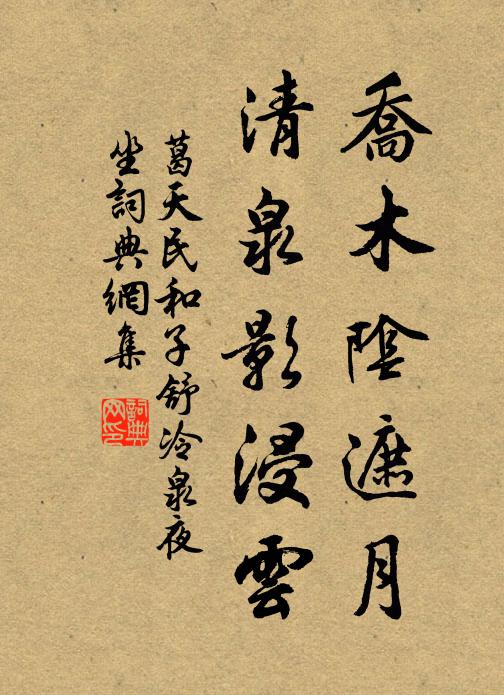 喬木陰遮月
清泉影浸雲
葛天民和子舒冷泉夜
坐詞典網集
詞典
网印